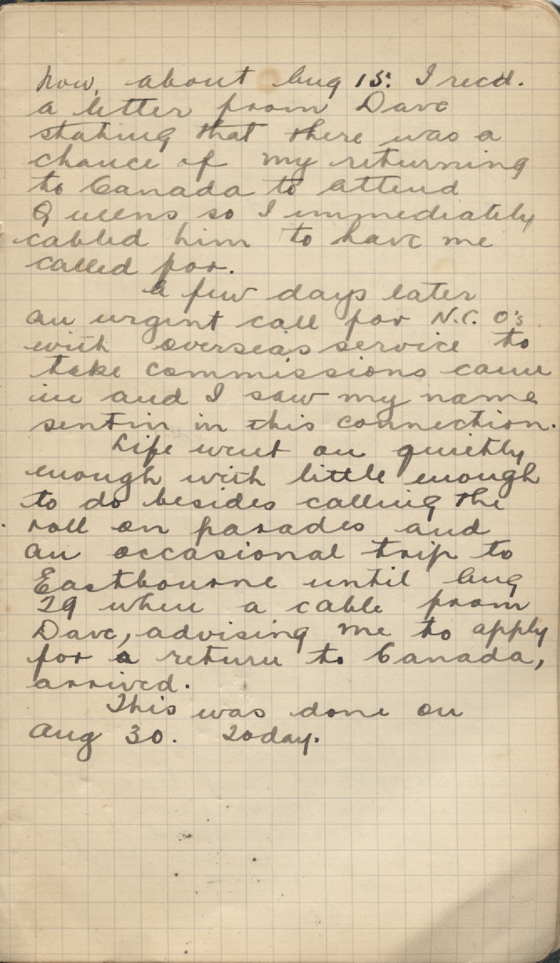 Now, about Aug 15: I recd.
a letter from Dave
stating that there was a
chance of my returning
to Canada to attend
Queens so I immediately
cabled him to have me
called for.
A few days later
an urgent call for N.C.O's
with overseas service to
take commissions came
in and I saw my name
sent in in this connection.
Life went on quietly
enough with little enough
to do besides calling the
roll on parades and
an occasional trip to
Eastbourne until Aug
29 when a cable from
Dave, advising me to apply
for a return to Canada,
arrived.
This was done on
Aug 30. Today.